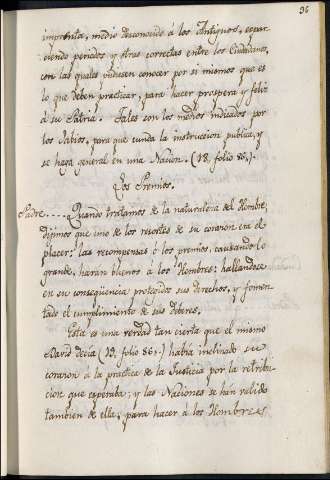 36
imprenta, medio desconocido á los Antiguos, espar-
ciendo periodos y obras correctas entre los Ciudadanos,
con las quales pudiesen conocer por si mismos que es
lo que deben practicar, para hacer prospera y feliz
á su Patria. Tales son los medios indicados por
los Sabios, para que cunda la instruccion publica, y
se haga general en una Nacion. (18. folio 85.)
Los Premios.
Padre.... Quando tratamos de la naturaleza del Hombre;
dijimos que uno de los resortes de su corazon era el
placer; las recompensas ó los premios, causandolo
grande, harán buenos á los Hombres: hallandose
en su conseqüencia protegidos sus derechos, y fomen-
tado el cumplimiento de sus deberes.
Esta es una verdad tan cierta que el mismo
David decia (19. folio 86.) habia inclinado su
corazon á la practica de la Justicia por la retribu-
cion que esperaba; y las Naciones se han valido
tambien de ella, para hacer á los Hombres